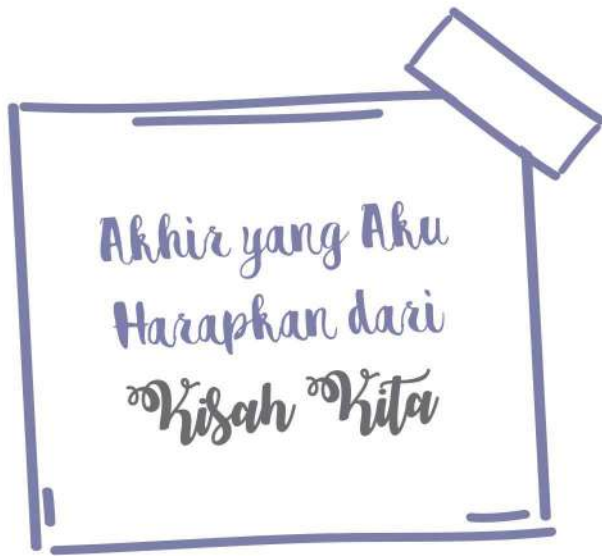 Akhir yang Aku
Harapkan dari
Kisah Kita